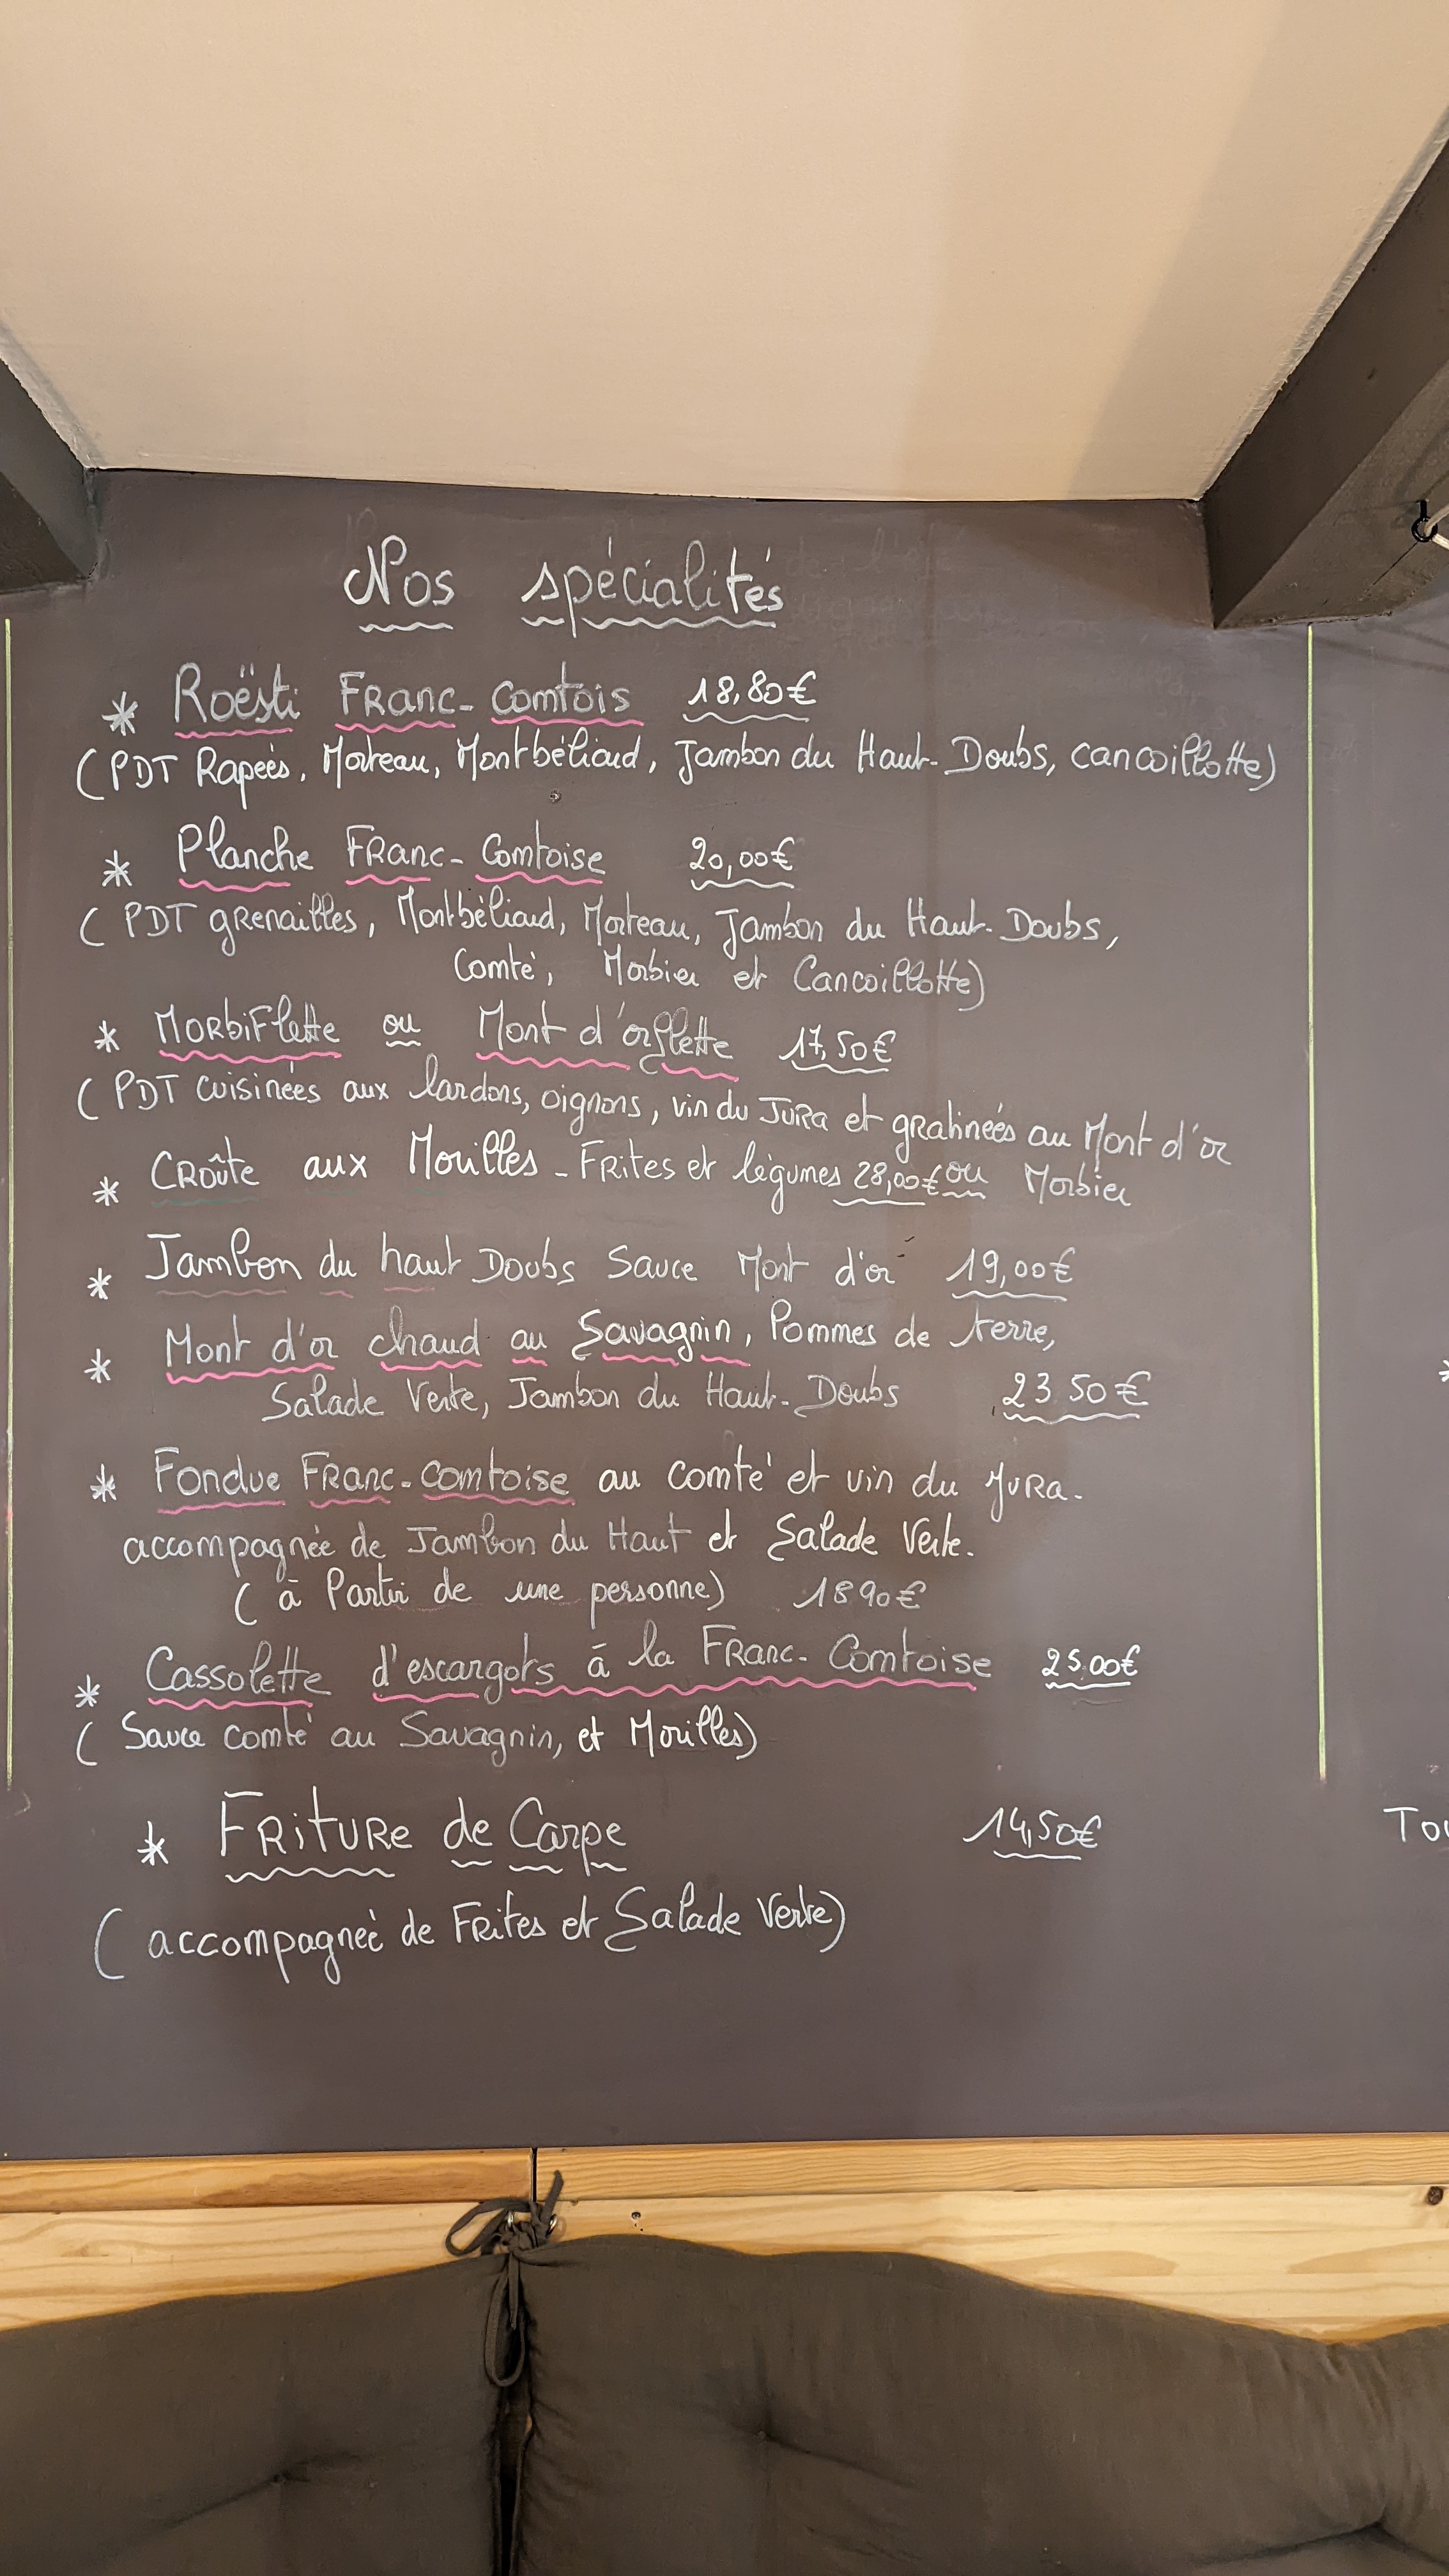 Nos spécialités
* Roësti Franc-Comtois 18,80€
(PDT Rapées, Morteau, Montbéliard, Jambon du Haut-Doubs, cancoillotte)
* Planche Franc-Comtoise 20,00€
(PDT grenailles, Montbéliard, Morteau, Jambon du Haut-Doubs,
Comté, Morbier et Cancoillotte)
* Morbiflette ou Mont d'orflette 17,50€
(PDT cuisinées aux lardons, oignons, vin du Jura et gratinées au Mont d'or
* Croûte aux Morilles - Frites et légumes 28,00€ ou Morbier
* Jambon du haut Doubs Sauce Mont d'or 19,00€
* Mont d'or chaud au Savagnin, Pommes de terre,
Salade Verte, Jambon du Haut-Doubs 23 50€
* Fondue Franc-comtoise au comté et vin du Jura.
accompagnée de Jambon du Haut et Salade Verte.
(à Partir de une personne) 18 90€
* Cassolette d'escargots à la Franc-Comtoise 25,00€
(Sauce comté au Savagnin, et Morilles)
* Friture de Carpe 14,50€
(accompagneé de Frites et Salade Verte)